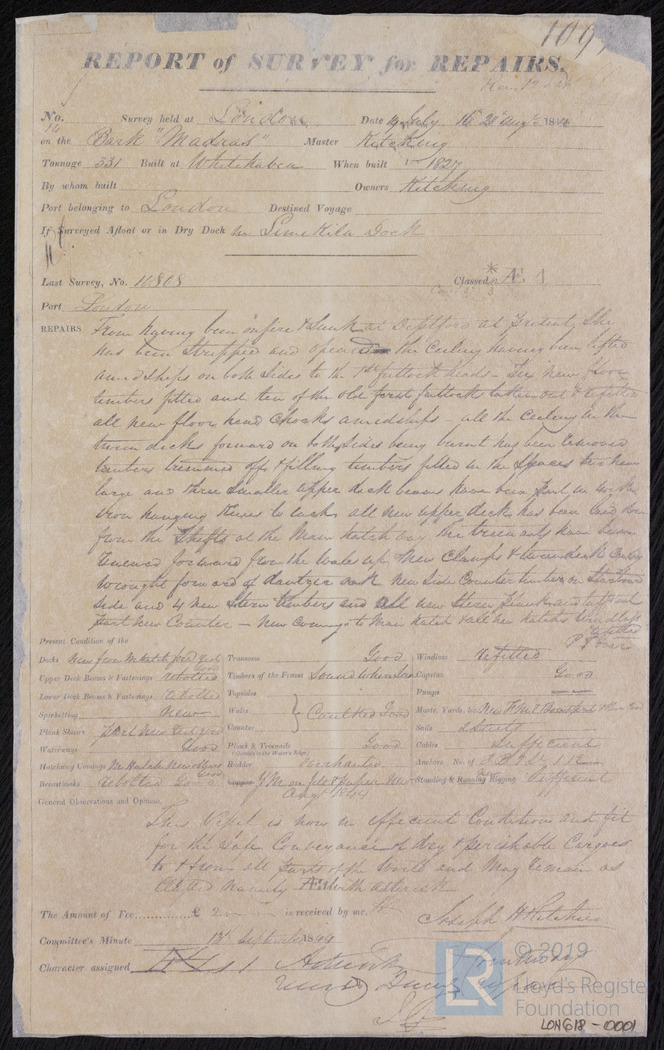 109
REPORT of SURVEY for REPAIRS.
No. Survey held at London Date 4 July to 28 Augt 1844
on the Bark "Madras" Master Kitching
Tonnage 331 Built at Whitehaven When built 1827
By whom built Owners Kitching
Port belonging to London Destined Voyage
If Surveyed Afloat or in Dry Dock in Limekiln Dock
Last Survey, No. 10868 Classed * Æ 1
Port London
REPAIRS From having been on fire & sunk at Deptford at Present, She
has been Stripped and opened the Ceiling having been lifted
amidships on both sides to the 1st futtock heads - new floor
timbers fitted and ten of the old first futtocks taken out & refitted
all new floor head Chocks amidships - all the Ceiling in the
tween decks forward on both Sides being burnt has been removed
timbers trimmed off & filling timbers fitted in the Spaces new
large and three Smaller upper deck beams have been put in with
iron hanging Knees to each all new upper deck has been laid
from the Shifts at the Main hatch way the treenails have been
renewed forward from the Wales up, New Clamps & tween deck Ceiling
wrought forward of dantzic oak new Side Counter timbers on Starboard
side and 4 new Stern timbers and all new Stern Plank and taffrail
Part New Counter - New Comings to Main hatch & all new hatches Windlass
refitted
Present Condition of the
Decks New from M hatch forwd Part Good
Upper Deck Beams & Fastenings rebolted
Lower Deck Beams & Fastenings rebolted
Spirketting New
Plank Shears Part New
Waterways Good
Hatchway Comings M Hatch New others Good
Breasthooks rebolted Good
Transoms Good
Timbers of the Frame Sound where seen
Topsides
Wales
Counter
} Caulked Good
Plank & Treenails (Outside to the Water's Edge) Good
Rudder Overhauled
Copper Y M on felt & paper New
Augt 1844
Windlass Refitted
Capstan Good
Pumps
Masts, Yards, &c. New
Sails
Cables Sufficient
Anchors No. of
Standing & Running Rigging Sufficient
General Observations and Opinion,
This Vessel is now in efficient Condition and fit
for the Safe Conveyance of dry & perishable Cargoes
to & from all parts of the World and May remain as
Classed namely Æ1 with asterisk
The Amount of Fee............£ 2 is received by me,
Joseph H Ritchie
Committee's Minute 13th September 1844
Character assigned Æ 1
© 2019
Lloyd's Register
Foundation
LR
LON618-0001